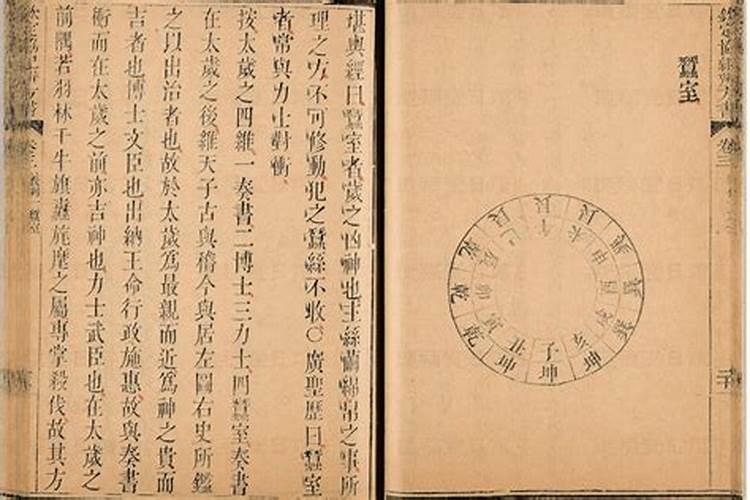 欽定協紀辨方書 卷三
蠶室
子 丑 寅 卯 辰 巳 午 未 申 酉 戌 亥
坤 坤 乾 乾 乾 艮 艮 艮 巽 巽 巽 坤
堪輿經曰蠶室者歲之凶神也主絲繭綿帛之事所
理之方不可修動犯之蠶絲不收〇廣聖歷曰蠶室
者常與力士對衝
按太歲之四維一奏書二博士三力士四蠶室奏書
在太歲之後維天子古與稽今與居左圖右史所鑑
之以出治者也故於太歲爲最親而近爲神之貴而
吉者也博士文臣也出納王命行政施惠故與奏書
衝而在太歲之前亦吉神也力士武臣也在太歲之
前隅若羽林千牛旗纛旄麾之屬專掌殺伐故其方
欽定協紀辨方書 卷三 蠶室